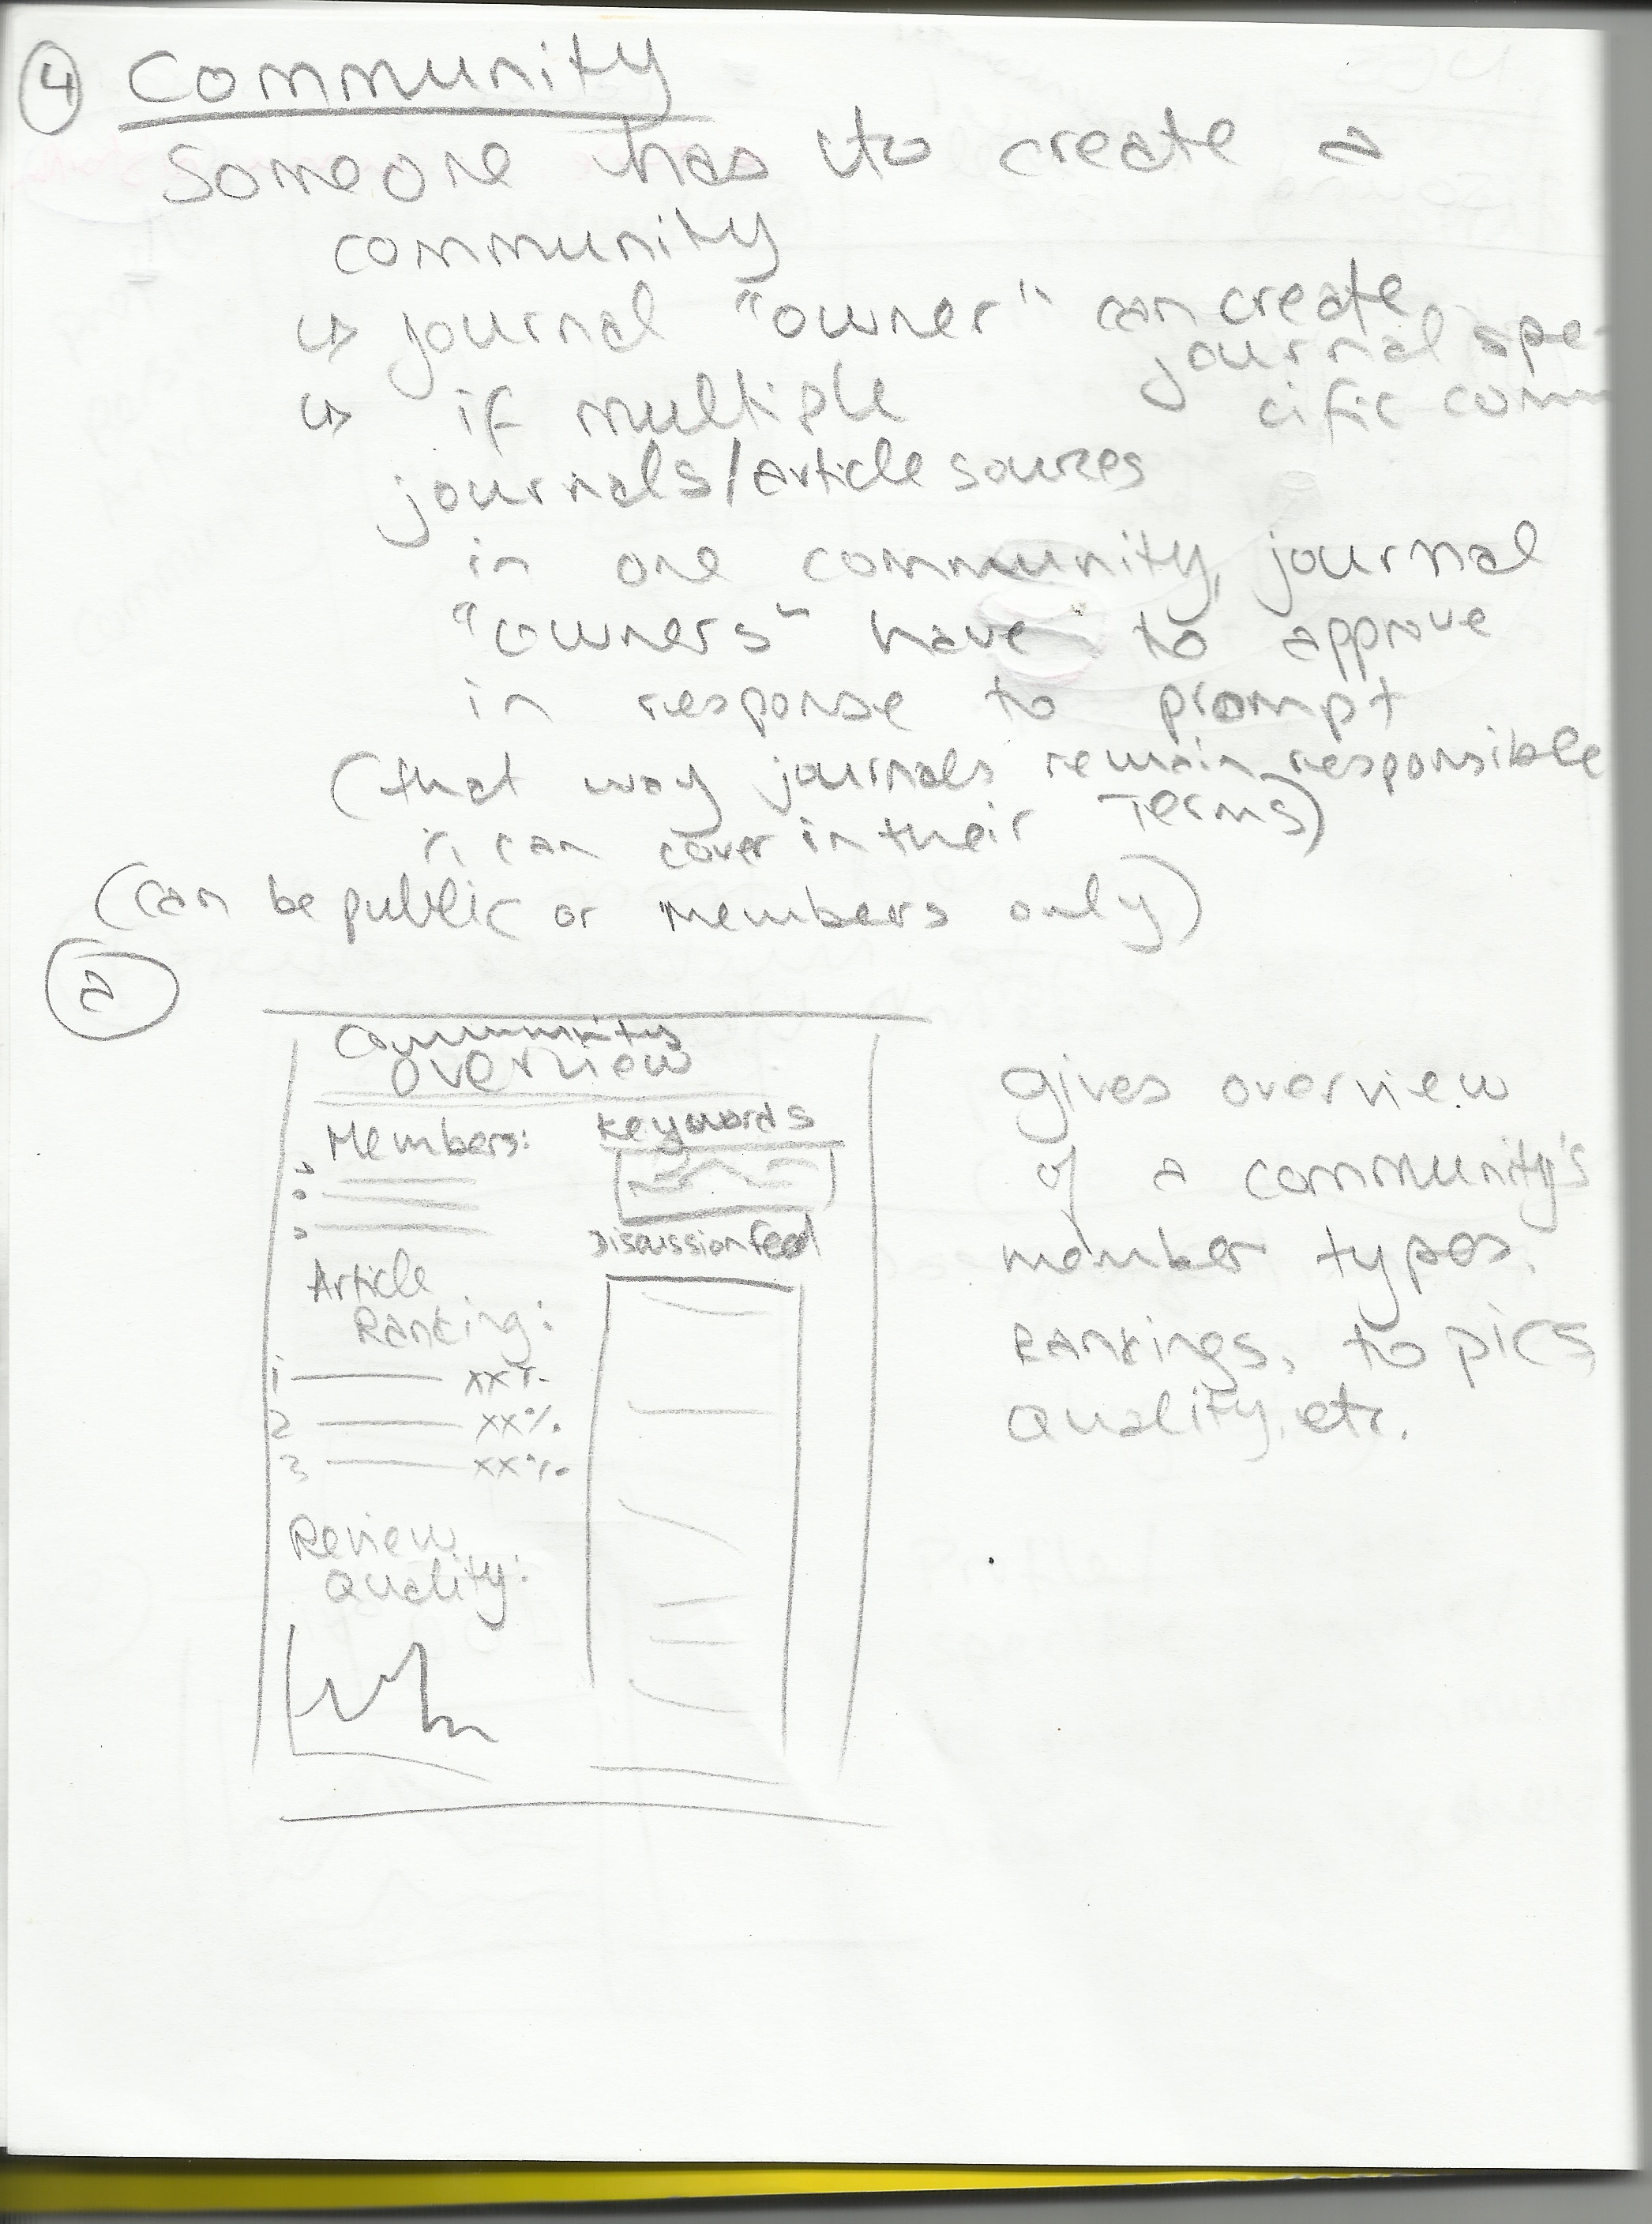 4 Community
Someone has to create a
community
↳ journal "owner" can create
journal spe-
cific comm
↳ if multiple
journals/article sources
in one community, journal
"owners" have to approve
in response to prompt
(that way journals remain responsible
can cover in their Terms)
(can be public or members only)
a
Community
overview
Members:
Keywords
Discussion feed
Article
Ranking:
1 xx%
2 xx%
3 xx%
Review
Quality:
gives overview
of a community's
member types,
Rankings, topics,
Quality, etc.